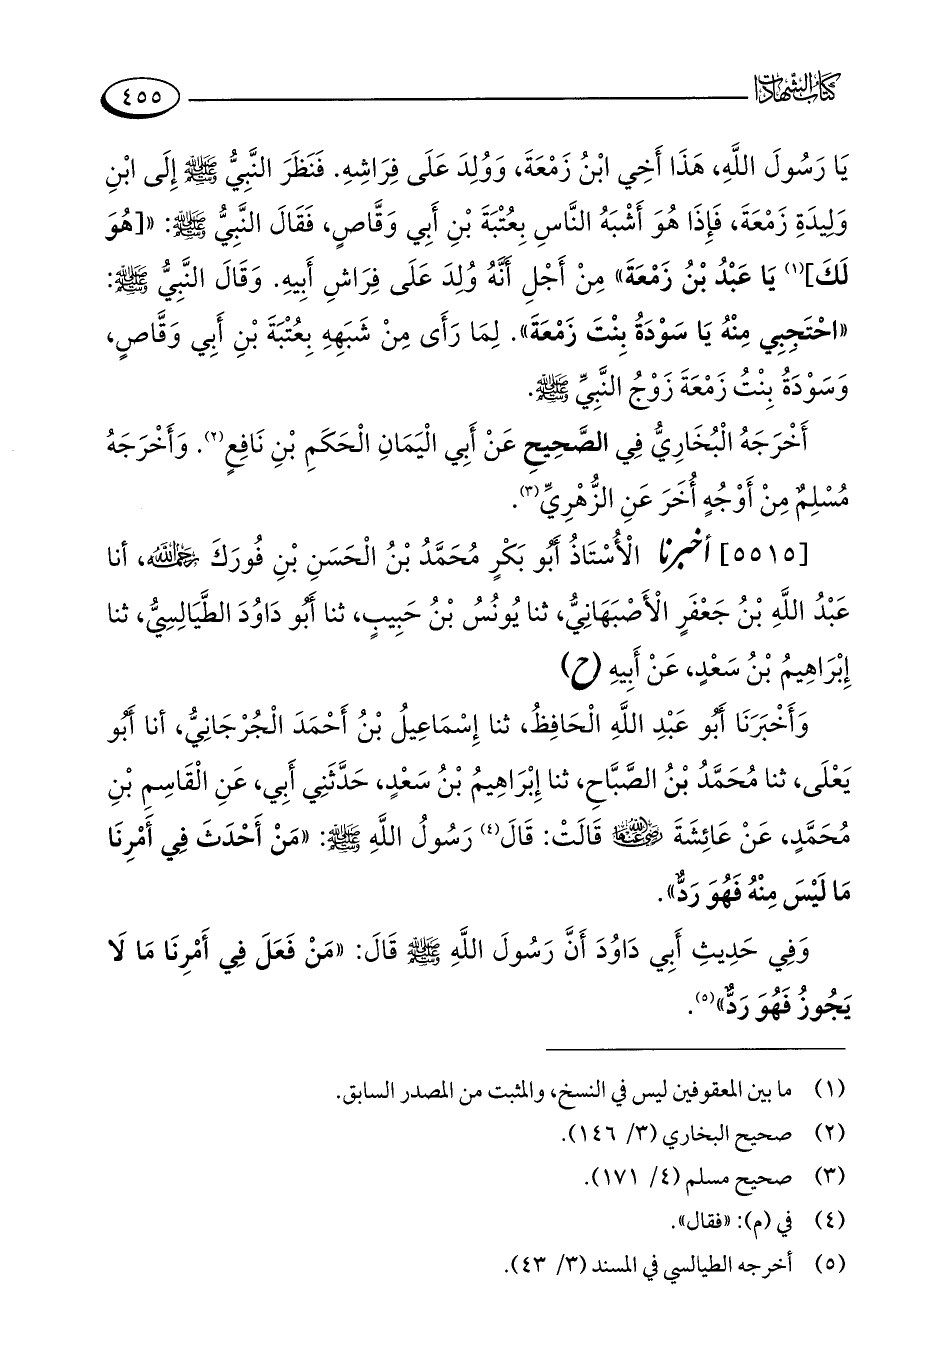 كتاب الشهادات
٤٥٥
يَا رَسُولَ اللَّهِ، هَذَا أَخِي ابْنُ زَمْعَةَ، وَوُلِدَ عَلَى فِرَاشِهِ. فَنَظَرَ النَّبِيُّ ﷺ إِلَى ابْنِ
وَلِيدَةِ زَمْعَةَ، فَإِذَا هُوَ أَشْبَهُ النَّاسِ بِعُتْبَةَ بْنِ أَبِي وَقَّاصٍ، فَقَالَ النَّبِيُّ ﷺ: «[هُوَ
لَكَ](١) يَا عَبْدُ بْنُ زَمْعَةَ» مِنْ أَجْلِ أَنَّهُ وُلِدَ عَلَى فِرَاشِ أَبِيهِ. وَقَالَ النَّبِيُّ ﷺ:
«احْتَجِبِي مِنْهُ يَا سَوْدَةُ بِنْتَ زَمْعَةَ». لِمَا رَأَى مِنْ شَبَهِهِ بِعُتْبَةَ بْنِ أَبِي وَقَّاصٍ،
وَسَوْدَةُ بِنْتُ زَمْعَةَ زَوْجُ النَّبِيِّ ﷺ.
أَخْرَجَهُ الْبُخَارِيُّ فِي الصَّحِيحِ عَنْ أَبِي الْيَمَانِ الْحَكَمِ بْنِ نَافِعٍ(٢). وَأَخْرَجَهُ
مُسْلِمٌ مِنْ أَوْجُهٍ أُخَرَ عَنِ الزُّهْرِيِّ(٣).
[٥٥١٥] أخبرنا الْأُسْتَاذُ أَبُو بَكْرٍ مُحَمَّدُ بْنُ الْحَسَنِ بْنِ فُورَكَ رحمه الله، أنا
عَبْدُ اللَّهِ بْنُ جَعْفَرٍ الْأَصْبَهَانِيُّ، ثنا يُونُسُ بْنُ حَبِيبٍ، ثنا أَبُو دَاوُدَ الطَّيَالِسِيُّ، ثنا
إِبْرَاهِيمُ بْنُ سَعْدٍ، عَنْ أَبِيهِ (ح)
وَأَخْبَرَنَا أَبُو عَبْدِ اللَّهِ الْحَافِظُ، ثنا إِسْمَاعِيلُ بْنُ أَحْمَدَ الْجُرْجَانِيُّ، أنا أَبُو
يَعْلَى، ثنا مُحَمَّدُ بْنُ الصَّبَّاحِ، ثنا إِبْرَاهِيمُ بْنُ سَعْدٍ، حَدَّثَنِي أَبِي، عَنِ الْقَاسِمِ بْنِ
مُحَمَّدٍ، عَنْ عَائِشَةَ رضي الله عنها قَالَتْ: قَالَ(٤) رَسُولُ اللَّهِ ﷺ: «مَنْ أَحْدَثَ فِي أَمْرِنَا
مَا لَيْسَ مِنْهُ فَهُوَ رَدٌّ».
وَفِي حَدِيثِ أَبِي دَاوُدَ أَنَّ رَسُولَ اللَّهِ ﷺ قَالَ: «مَنْ فَعَلَ فِي أَمْرِنَا مَا لَا
يَجُوزُ فَهُوَ رَدٌّ»(٥).
(١) ما بين المعقوفين ليس في النسخ، والمثبت من المصدر السابق.
(٢) صحيح البخاري (٣/ ١٤٦).
(٣) صحيح مسلم (٤/ ١٧١).
(٤) في (م): «فقال».
(٥) أخرجه الطيالسي في المسند (٣/ ٤٣).